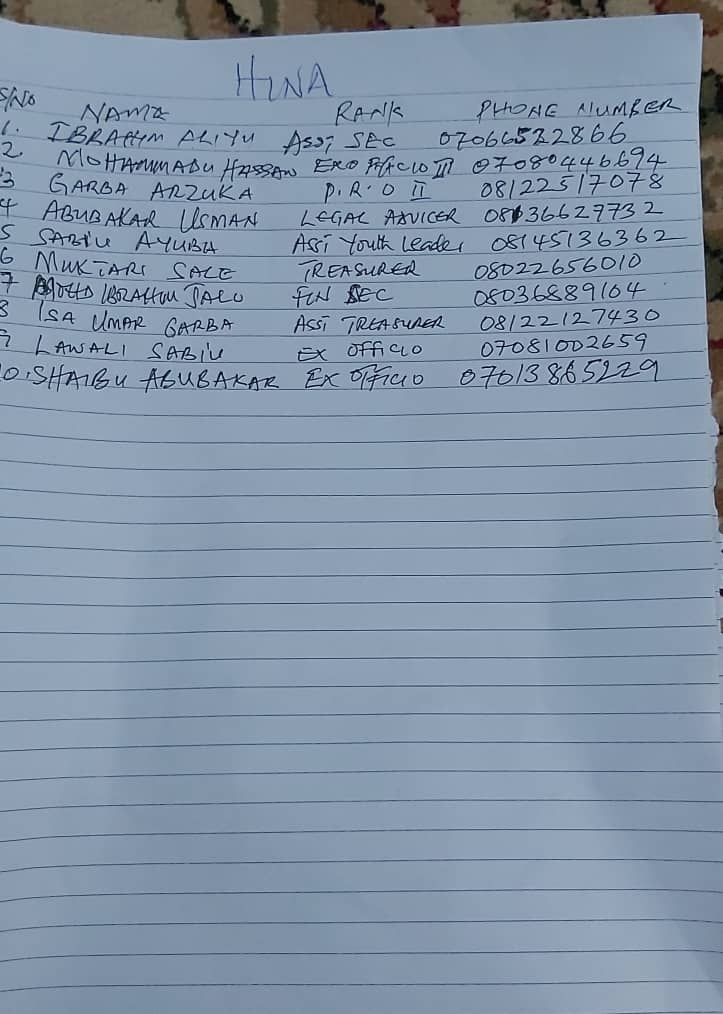 HINA
S/No NAME RANK PHONE NUMBER
1. IBRAHIM ALIYU ASSI SEC 07066522866
2 MOHAMMADU HASSAN EXO FFICIO III 07080446694
3 GARBA ARZUKA P.R.O II 08122517078
4 ABUBAKAR USMAN LEGAL ADVICER 08136629732
5 SABIU AYUBA Assi Youth leader 08145136362
6 MUKTARI SALE TREASURER 08022656010
7 IBRAHIM JALO FIN SEC 08036889164
8 ISA UMAR GARBA ASSI TREASURER 08122127430
9 LAWALI SABIU EX OFFICIO 07081002659
10. SHAIBU ABUBAKAR EX OFFICIO 07013865229